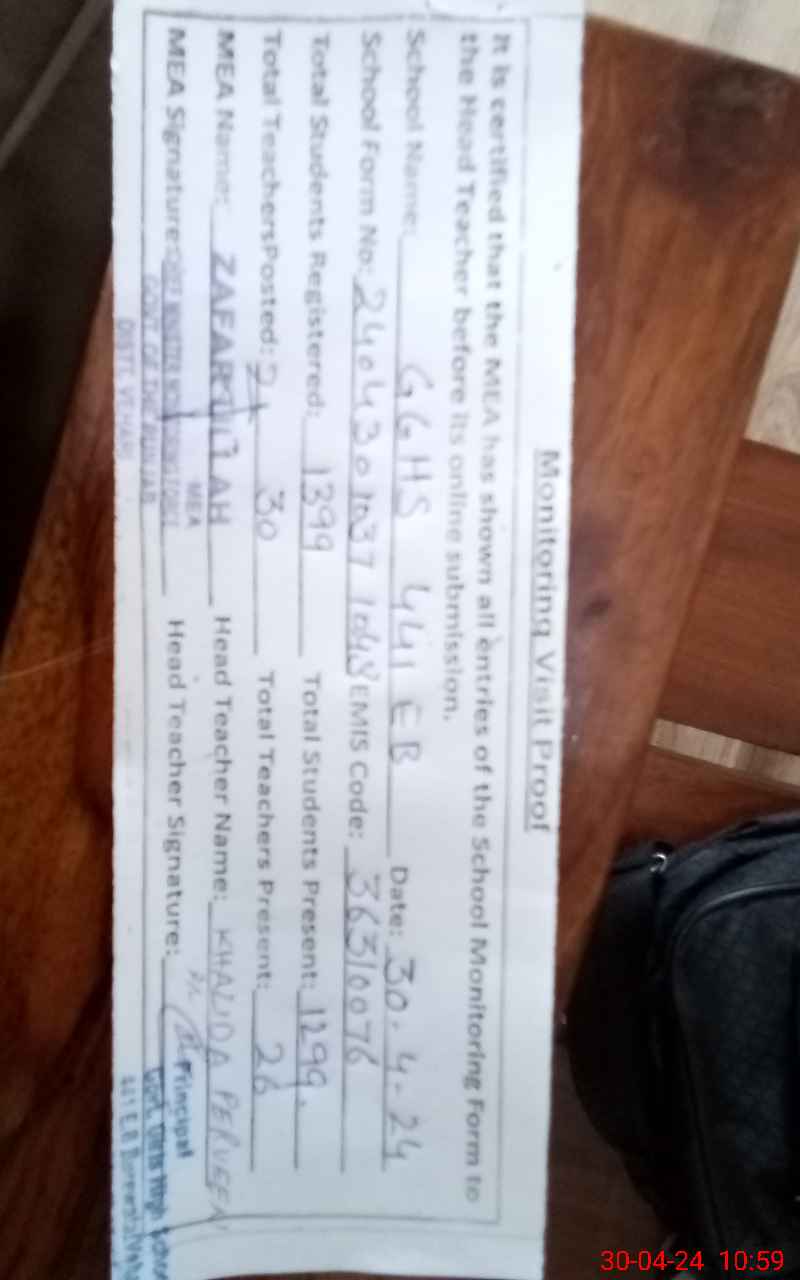 Monitoring Visit Proof
It is certified that the MEA has shown all entries of the School Monitoring Form to
the Head Teacher before its online submission.
School Name: GGHS 441 EB Date: 30-4-24
School Form No: 2404301037 1048 EMIS Code: 36310076
Total Students Registered: 1399 Total Students Present: 1299
Total TeachersPosted: 30 Total Teachers Present: 26
MEA Name: ZAFARULLAH Head Teacher Name: KHALIDA PERVEEN
MEA Signature: Head Teacher Signature:
MEA
CHIEF MINISTER MONITORING FORCE
GOVT. OF THE PUNJAB
DISTT. VEHARI
Principal
Govt. Girls High School
441 E.B
30-04-24 10:59